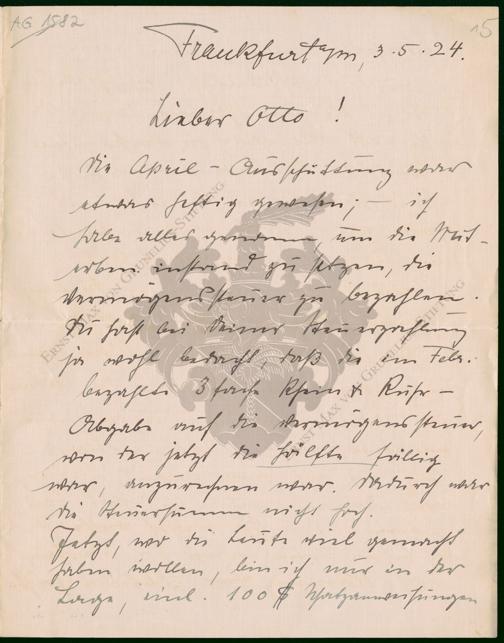 AG 1582
15
Frankfurt a/m, 3.5.24.
Lieber Otto!
Die April-Ausschüttung war
etwas heftig gewesen; – ich
habe alles genommen um die Mit-
erben instand zu setzen, die
Vermögenssteuer zu bezahlen.
Du hast bei Deiner Steuerzahlung
ja wohl bedacht, daß die im Febr.
bezahlte 3fache Rhein & Ruhr-
Abgabe auf die Vermögenssteuer,
von der jetzt die Hälfte fällig
war, anzurechnen war. Dadurch war
die Steuersumme nicht hoch.
Jetzt, wo die Leute viel gemacht
haben wollen, bin ich nur in der
Lage, incl. 100 $ Schatzanweisungen
ERNST MAX VON GRUNELIUS-STIFTUNG
ERNST MAX VON GRUNELIUS-STIFTUNG